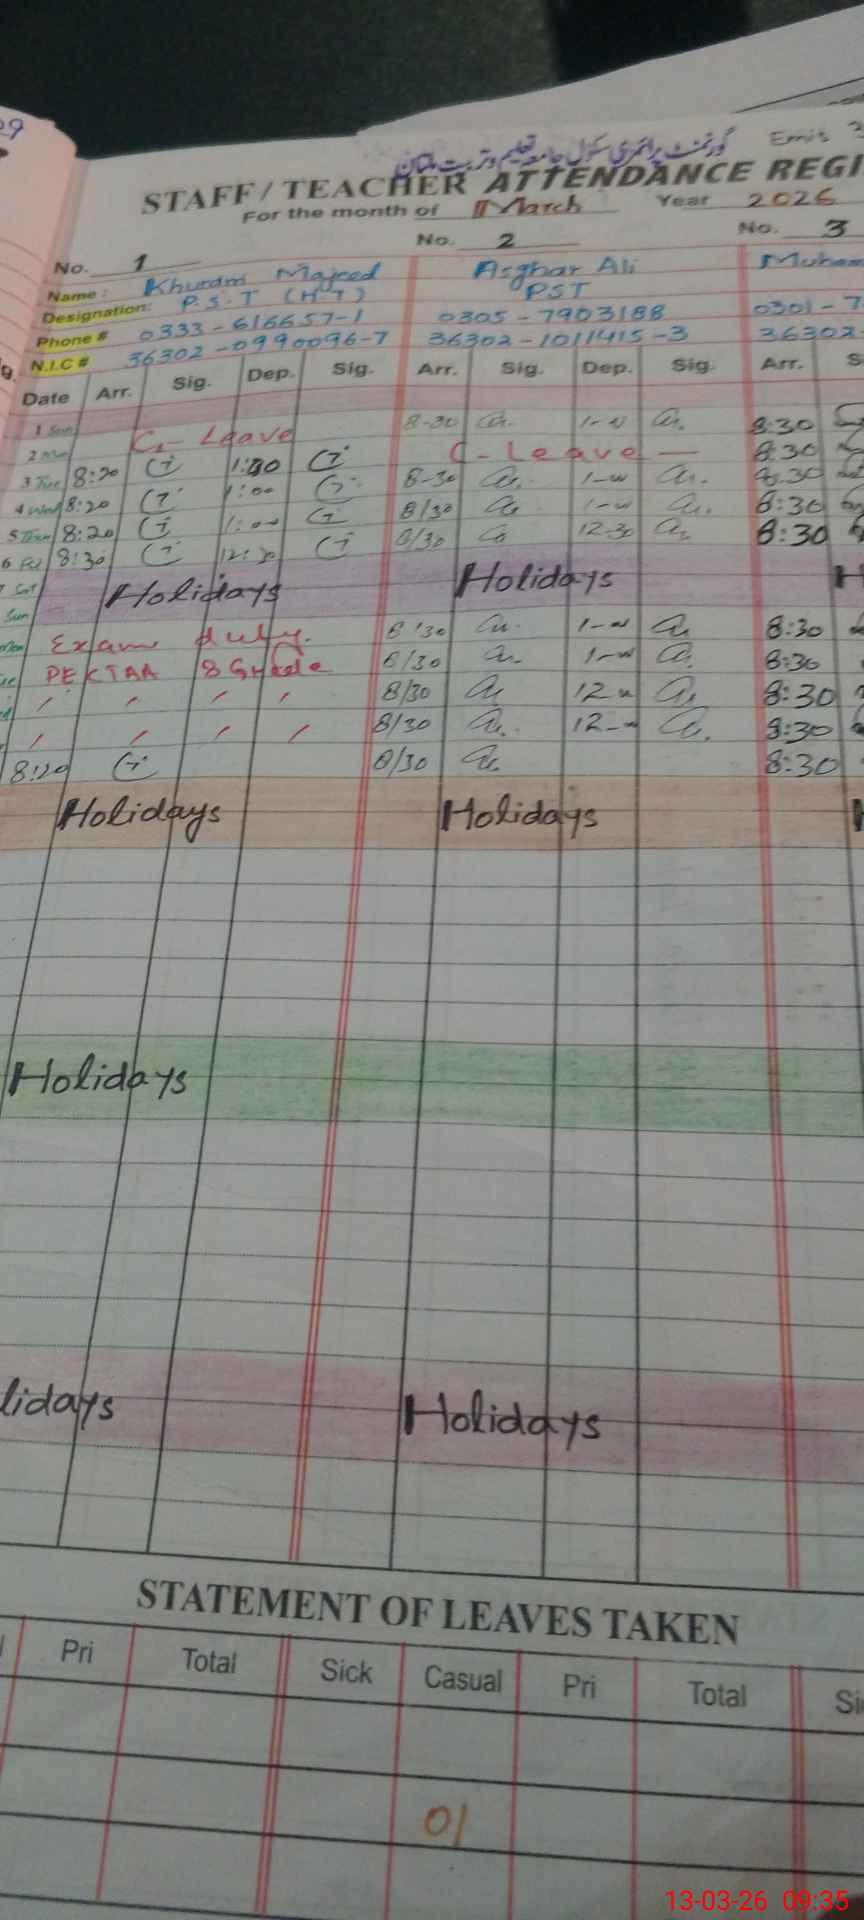 29
گورنمنٹ پرائمری سکول جامعہ تعلیم و تربیت ملتان Emis 3
STAFF / TEACHER ATTENDANCE REGI
For the month of March Year 2026
No. 1 No. 2 No. 3
Name: Khuram Majeed Asghar Ali Muham
Designation: P.S.T (H.T) PST
Phone # 0333-616657-1 0305-7903188 0301-7
N.I.C # 36302-0990096-7 36302-1011415-3 36302
Date Arr. Sig. Dep. Sig. Arr. Sig. Dep. Sig. Arr. S
1 Sun
2 Mon C- Leave 8-30 8:30
3 Tue 8:20 C-Leave 8:30
4 Wed 8:20 1:00 8-30 8:30
5 Thu 8:20 1:00 8/30 8:30
6 Fri 8:30 8/30 12-30 8:30
7 Sat Holidays Holidays H
Sun
Mon Exam duty. 8:30 8:30
PEKTAA 8 Grade 8/30 8:30
〃 〃 〃 〃 8/30 12 8:30
〃 〃 〃 〃 8/30 12 8:30
8:20 8/30 8:30
Holidays Holidays H
Holidays
lidays Holidays
STATEMENT OF LEAVES TAKEN
Pri Total Sick Casual Pri Total Si
01
13-03-26 09:35